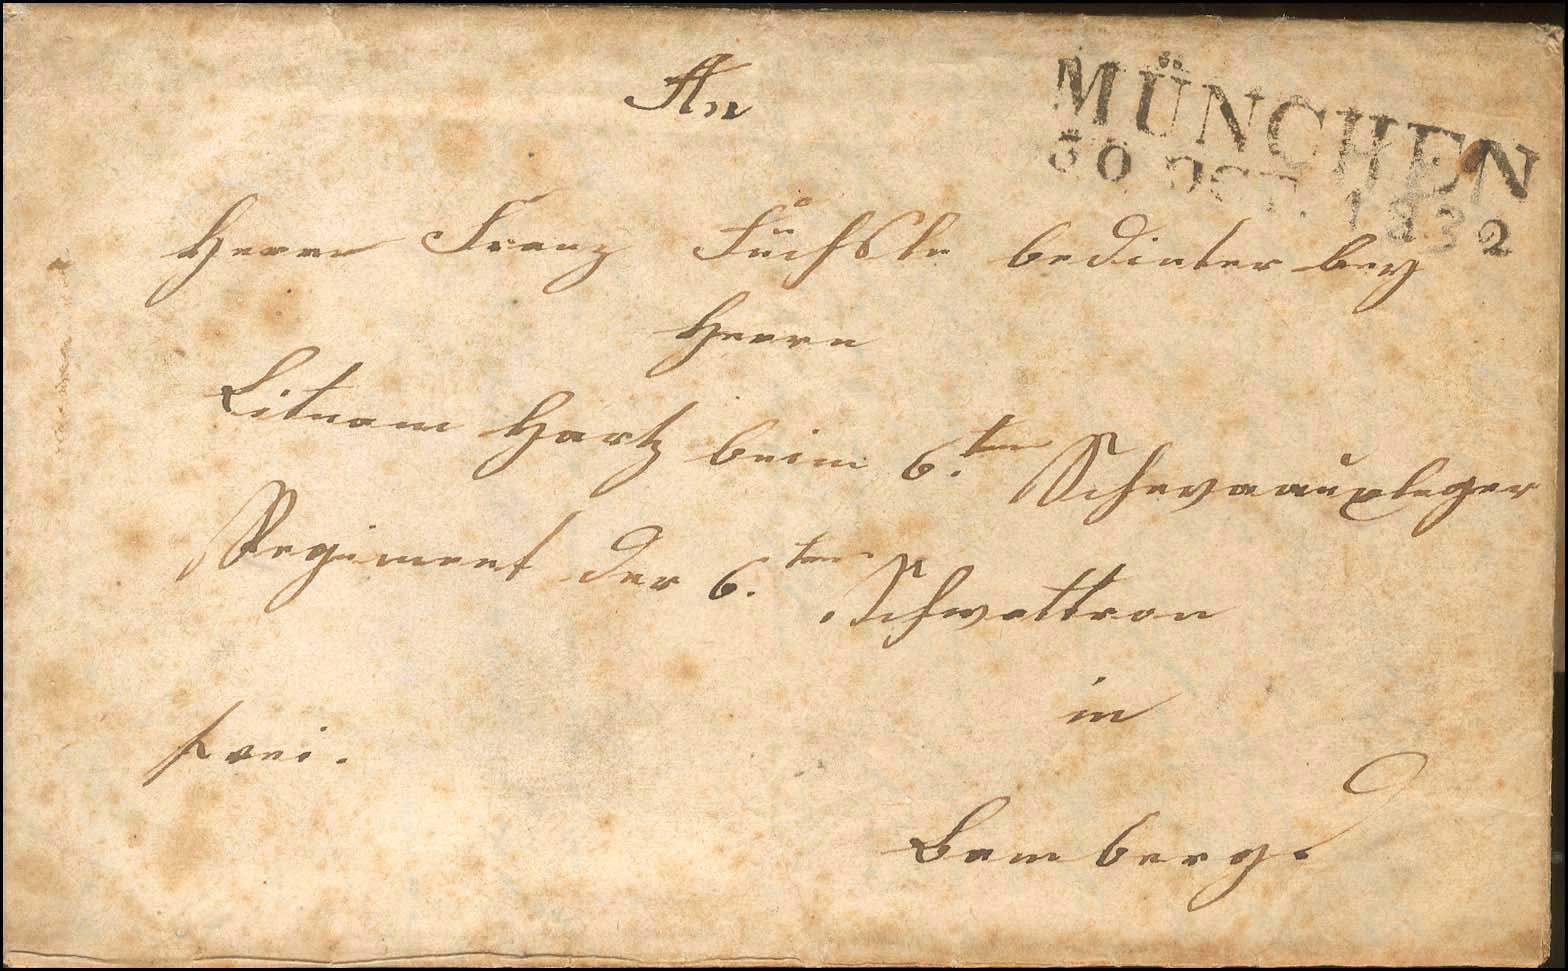 An
MÜNCHEN
30 OCT. 1832
Herrn Franz Füchsle bedinter bey
Herrn
Litnam Hartz beim 6.ten Schevauxleger
Regiment der 6.ten Schwattron
in
frei.
Bamberg.